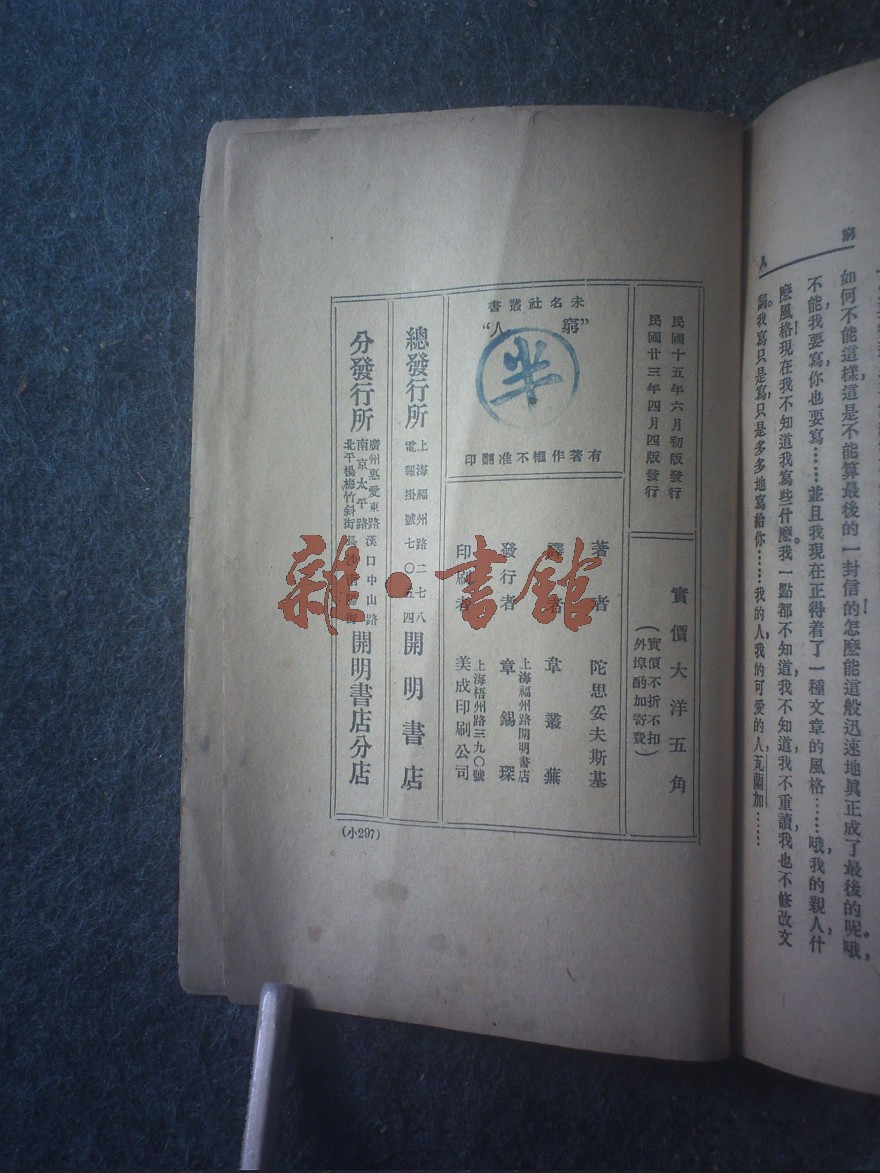 窮人
如何不能這樣,這是不能算最後的一封信的!怎麼能這般迅速地眞正成了最後的呢。哦,
不能,我要寫,你也要寫……並且我現在正得着了一種文章的風格……哦,我的親人,什
麼風格!現在我不知道我寫些什麼,我一點都不知道,我不知道,我不重讀,我也不修改文
詞。我寫只是寫,只是多多地寫給你……我的人,我的可愛的人,瓦蘭加……
民國十五年六月初版發行
民國廿三年四月四版發行
實價大洋五角
(實價不折不扣
外埠酌加寄費)
未名社叢書
"窮人"
半
有著作權不准翻印
著者 陀思妥夫斯基
譯者 韋叢蕪
發行者 上海福州路開明書店
章錫琛
印刷者 上海梧州路三九〇號
美成印刷公司
總發行所 上海福州路二七八
電報掛號七〇五四 開明書店
分發行所 廣州惠愛東路 漢口中山路
南京太平路
北平楊梅竹斜街 開明書店分店
(小297)
雜·書館